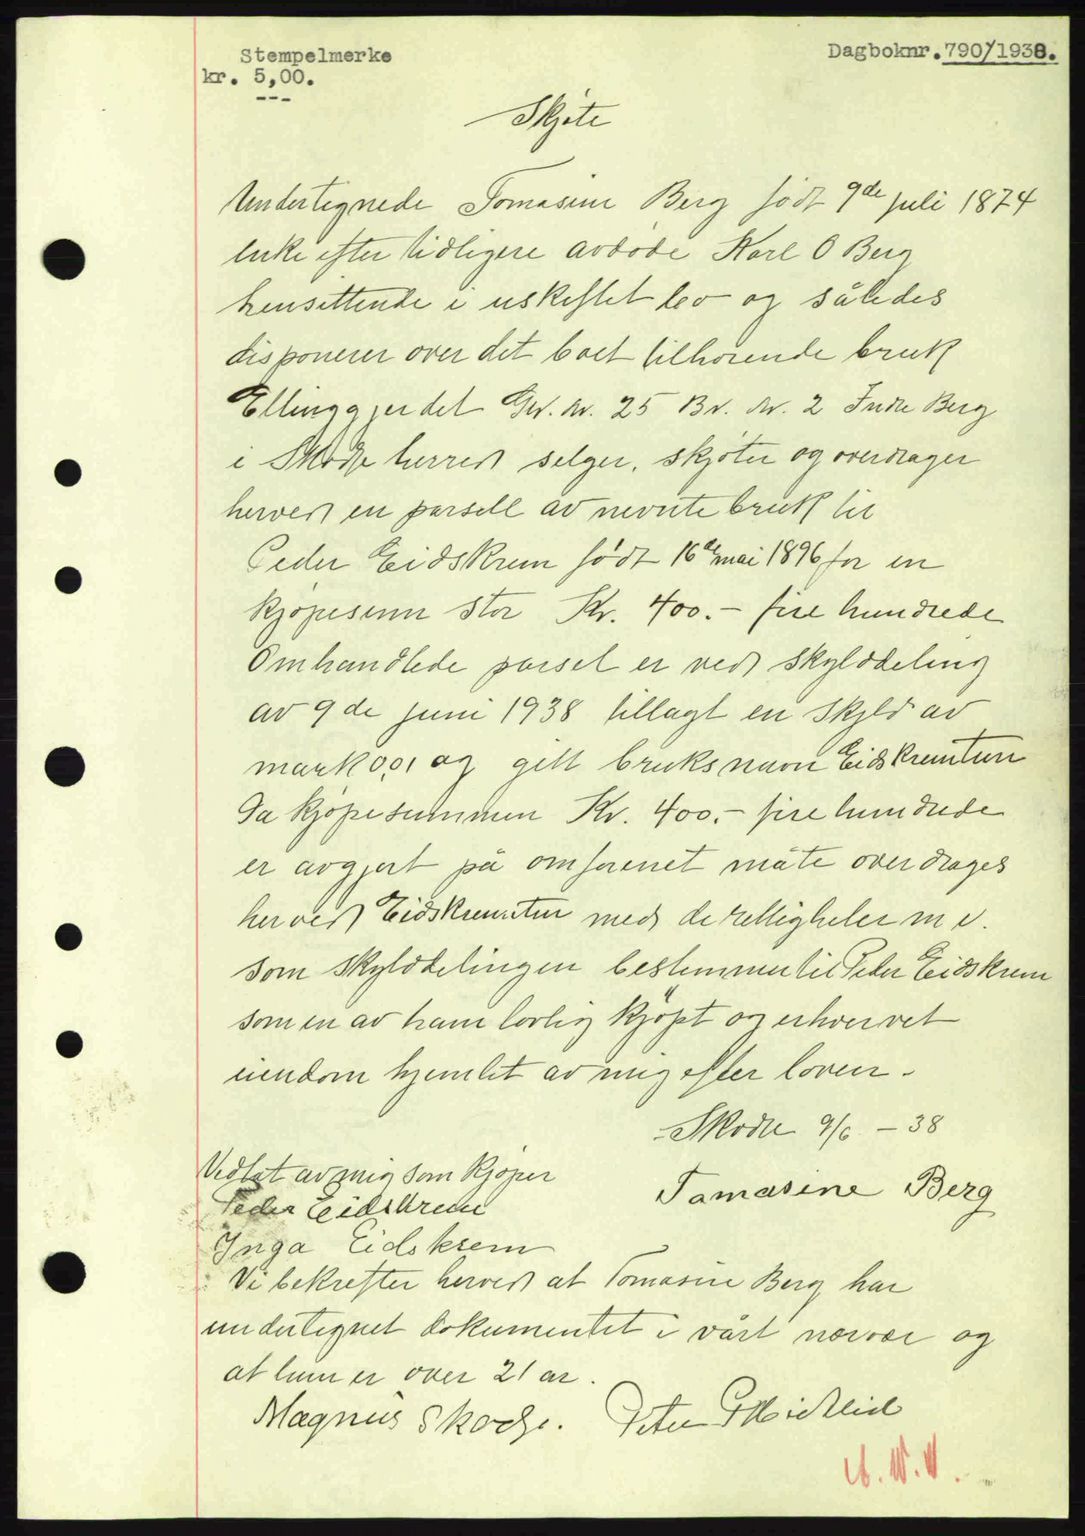 Stempelmerke
kr. 5,00.
---
Dagboknr. 790/1938.
Skjøte
Undertegnede Tomasine Berg født 9de juli 1874
enke efter tidligere avdøde Karl O Berg
hensittende i uskiftet bo og således
disponerer over det boet tilhørende bruk
Ellinggjerdet Gr. nr. 25 Br. nr. 2 Indre Berg
i Skodje herred selger, skjøter og overdrager
herved en parsell av nevnte bruk til
Peder Eidskrem født 16de mai 1896 for en
kjøpesum stor Kr. 400.- fire hundrede
Omhandlede parsel er ved skylddeling
av 9de juni 1938 tillagt en skyld av
mark 0,01 og gitt bruksnavn Eidskremtun
Da kjøpesummen Kr. 400.- fire hundrede
er avgjort på omforenet måte overdrages
herved Eidskremtun med de rettigheter m v.
som skylddelingen bestemmer til Peder Eidskrem
som en av ham lovlig kjøpt og erhvervet
eiendom hjemlet av mig efter loven.
Skodje 9/6 - 38
Vedtat av mig som kjøper
Tomasine Berg
Peder Eidskrem
Inga Eidskrem
Vi bekrefter herved at Tomasine Berg har
undertegnet dokumentet i vårt nærvær og
at hun er over 21 år.
Magnus Skodje. Peter